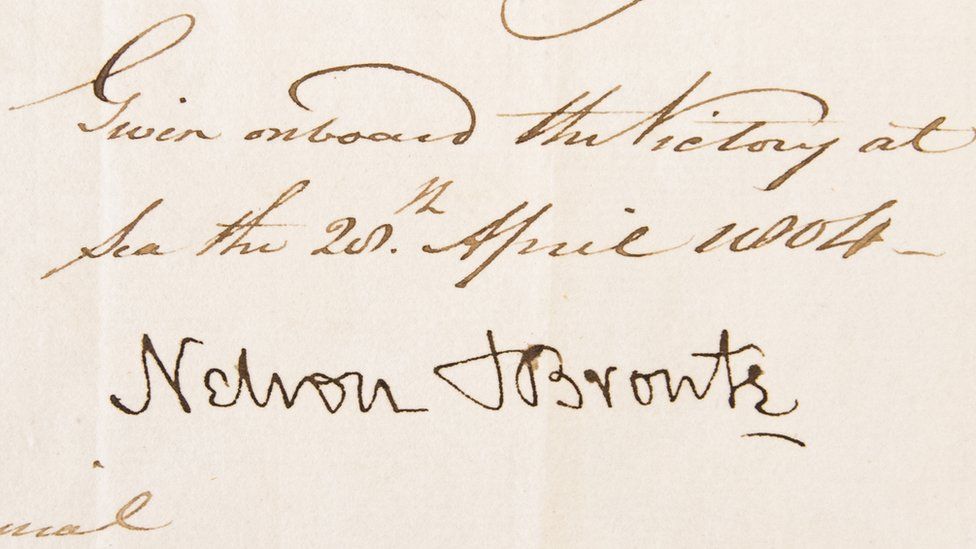 Given onboard the Victory at
Sea the 28th April 1804 –
Nelson & Bronte